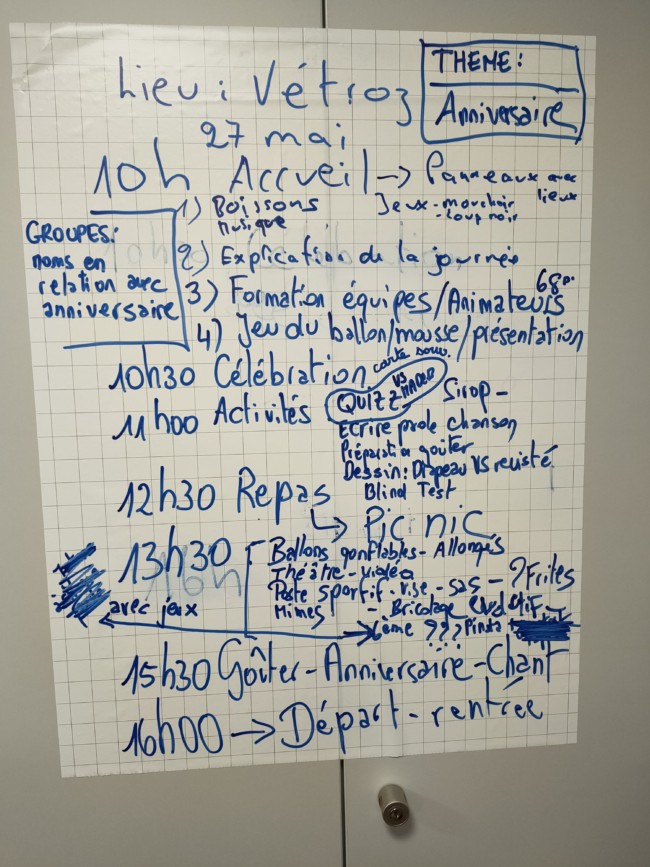 THEME:
Anniversaire
Lieu : Vétroz
27 mai
10h Accueil → Panneaux avec lieux
Jeux - mouchoir
- loup noir
GROUPES:
noms en
relation avec
anniversaire
1) Boissons
Musique
2) Explication de la journée
3) Formation équipes/Animateurs 68p.
4) Jeu du ballon/mousse/présentation
10h30 Célébration carte souv.
11h00 Activités QUIZZ VS MACRO Sirop -
Ecrire prole chanson
Préparatio goûter
Dessin: Drapeau VS revisité
Blind Test
12h30 Repas
→ Pic nic
13h30 Ballons gonflables - Allongés
Théâtre - vidéo
Poste sportif - vise - sas - ? Frites
Mimes - Bricolage
avec jeux
???
15h30 Goûter - Anniversaire - Chant
16h00 → Départ - rentrée